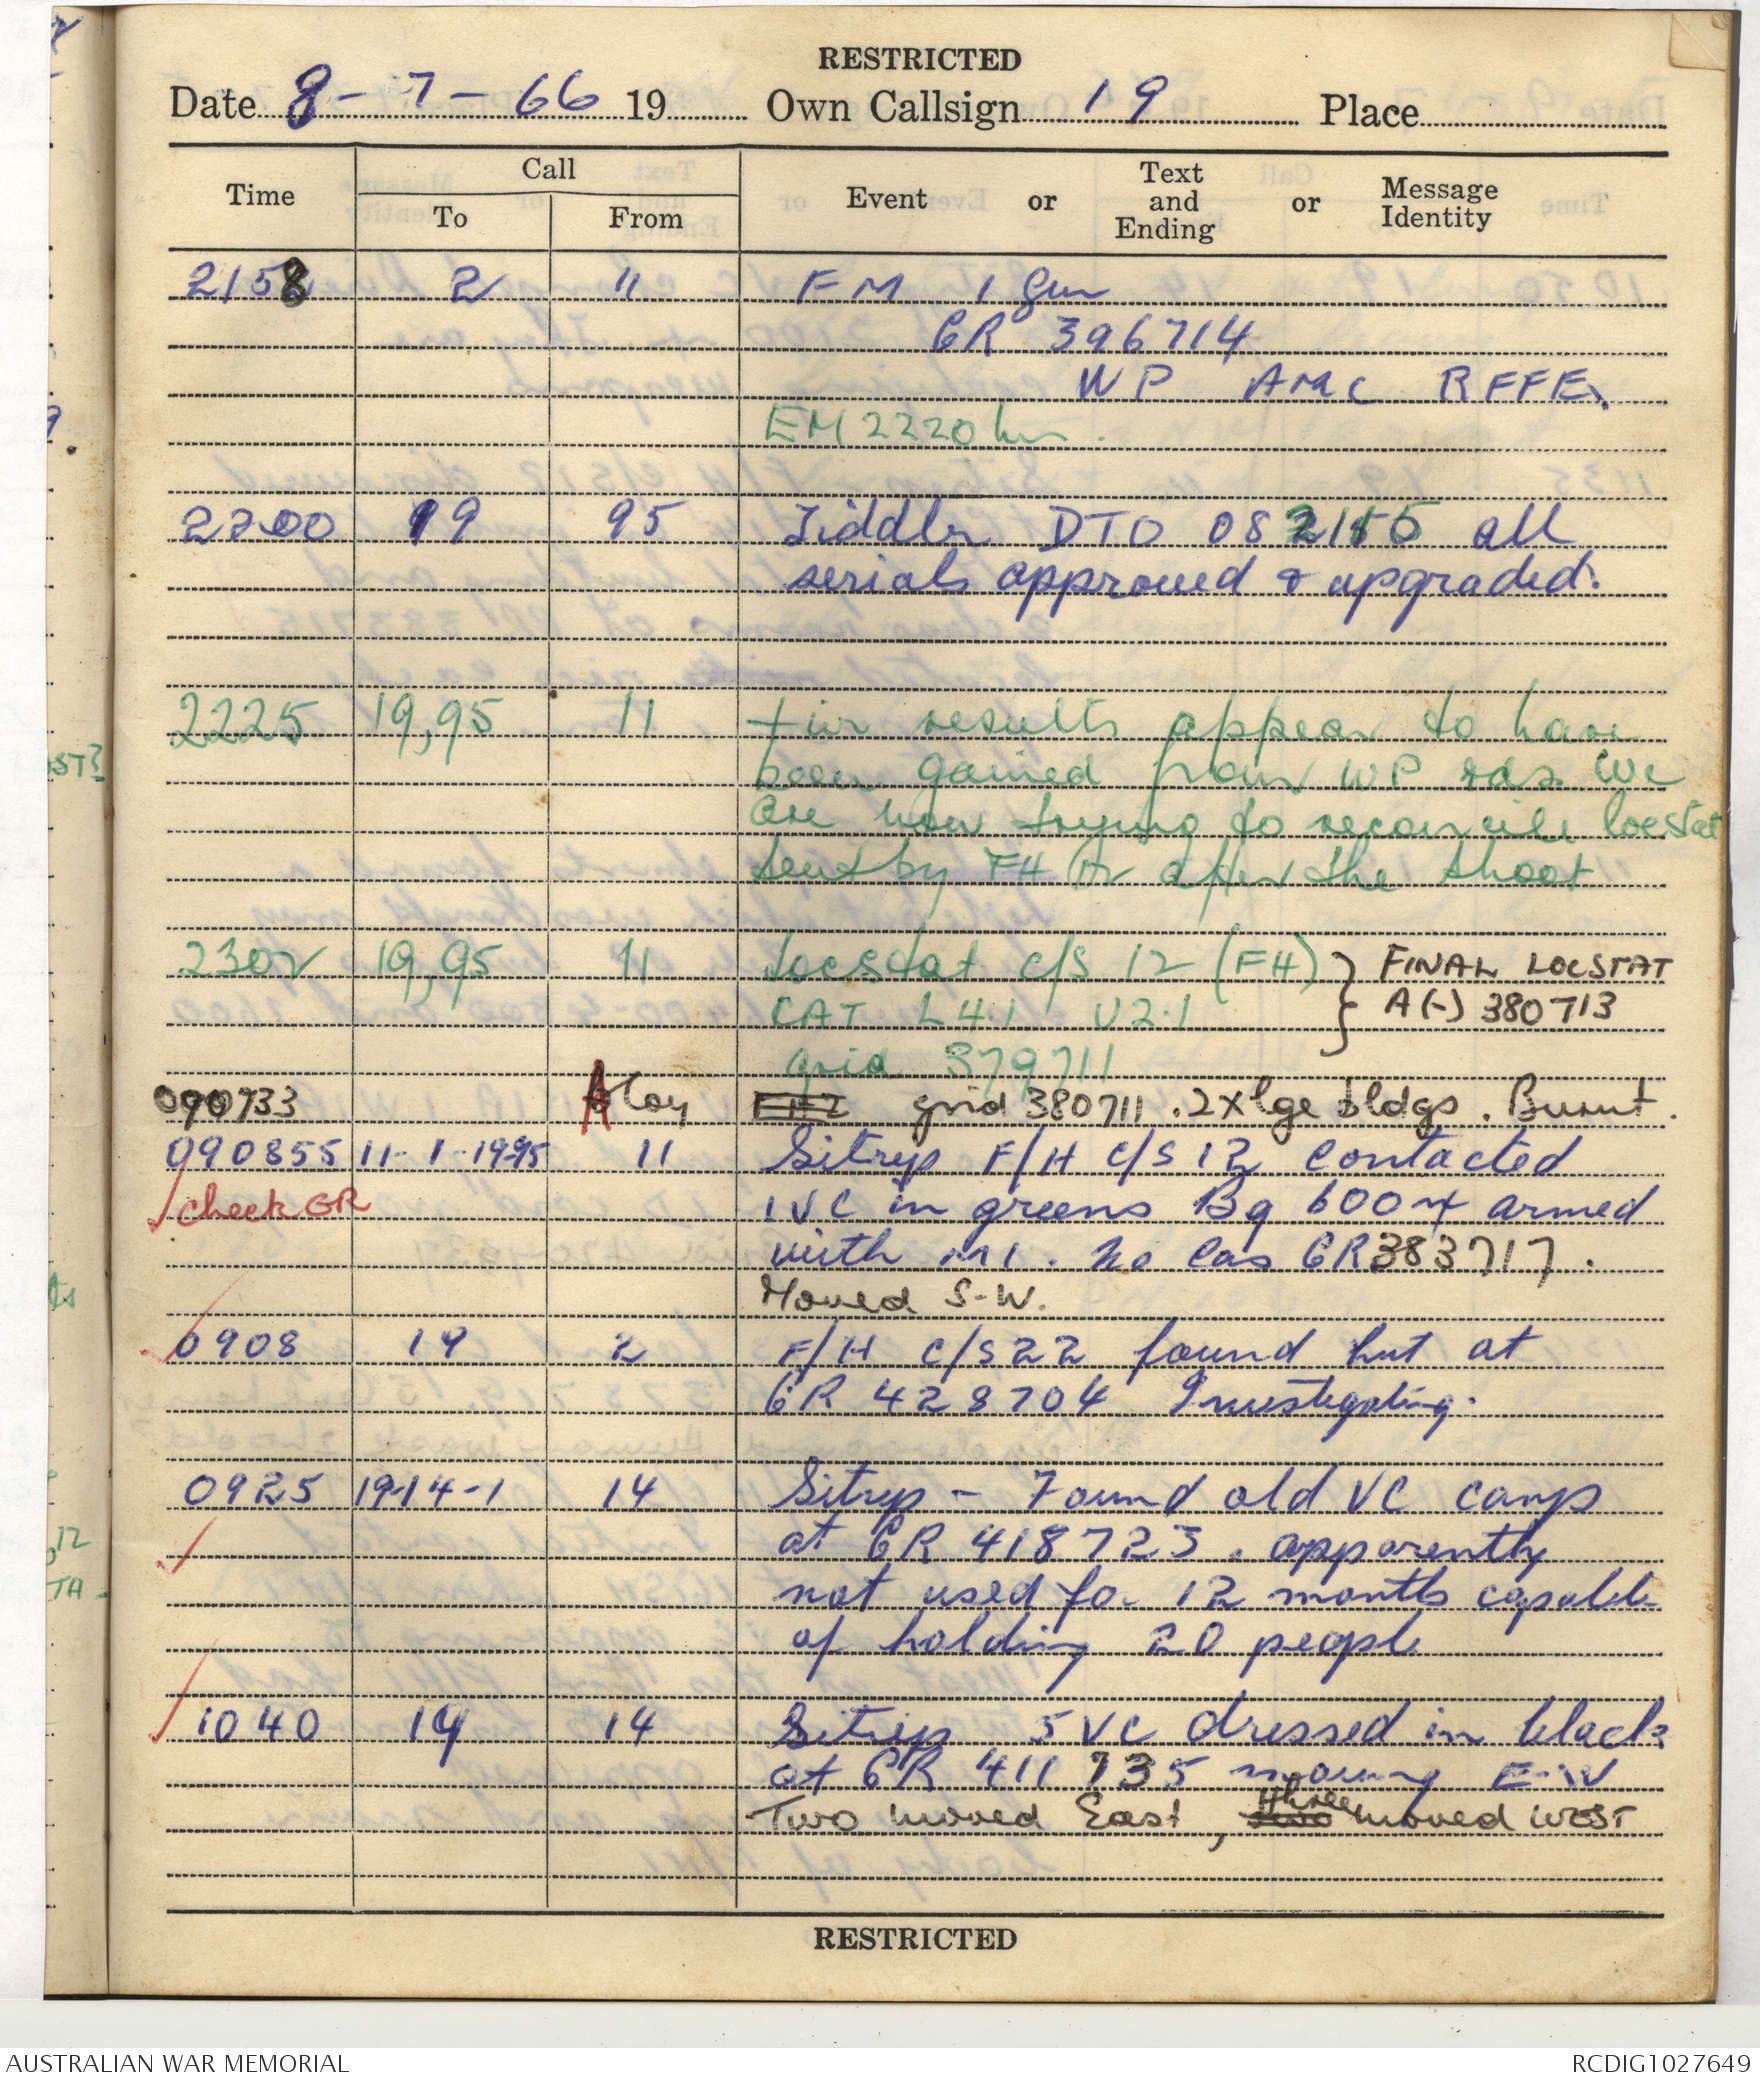 RESTRICTED
Date 8-7-66 19 Own Callsign 19 Place
Time Call To From Event or Text and Ending or Message Identity
2158 2 " FM 1 gun
GR 396714
WP AMC RFFE.
EM 2220 hrs.
2200 19 95 DTO 082115 all
serials approved & upgraded.
2225 19,95 11 results appear to have
been gained from WP rds. We
are now trying to reconcile locstat
sent by FH 12 after the shoot
2302 19,95 11 Locstat c/s 12 (FH) } FINAL LOCSTAT
CAT L4.1 U2.1 A(-) 380713
grid 379711
090733 A Coy grid 380711. 2x lge bldgs. Burnt.
090855 11-1-19-95 11 Sitrep F/H C/S 12 contacted
check GR 1 VC in greens Bg 600x armed
with M1. No Cas GR 383717.
Moved S-W.
0908 19 2 F/H C/S 22 found hut at
GR 428704 Investigating.
0925 19-14-1 14 Sitrep - Found old VC camp
at GR 418723. apparently
not used for 12 months capable
of holding 20 people
1040 19 14 Sitrep 5 VC dressed in black
at GR 411735 moving E-W
Two moved East, two three moved WEST
RESTRICTED
AUSTRALIAN WAR MEMORIAL RCDIG1027649